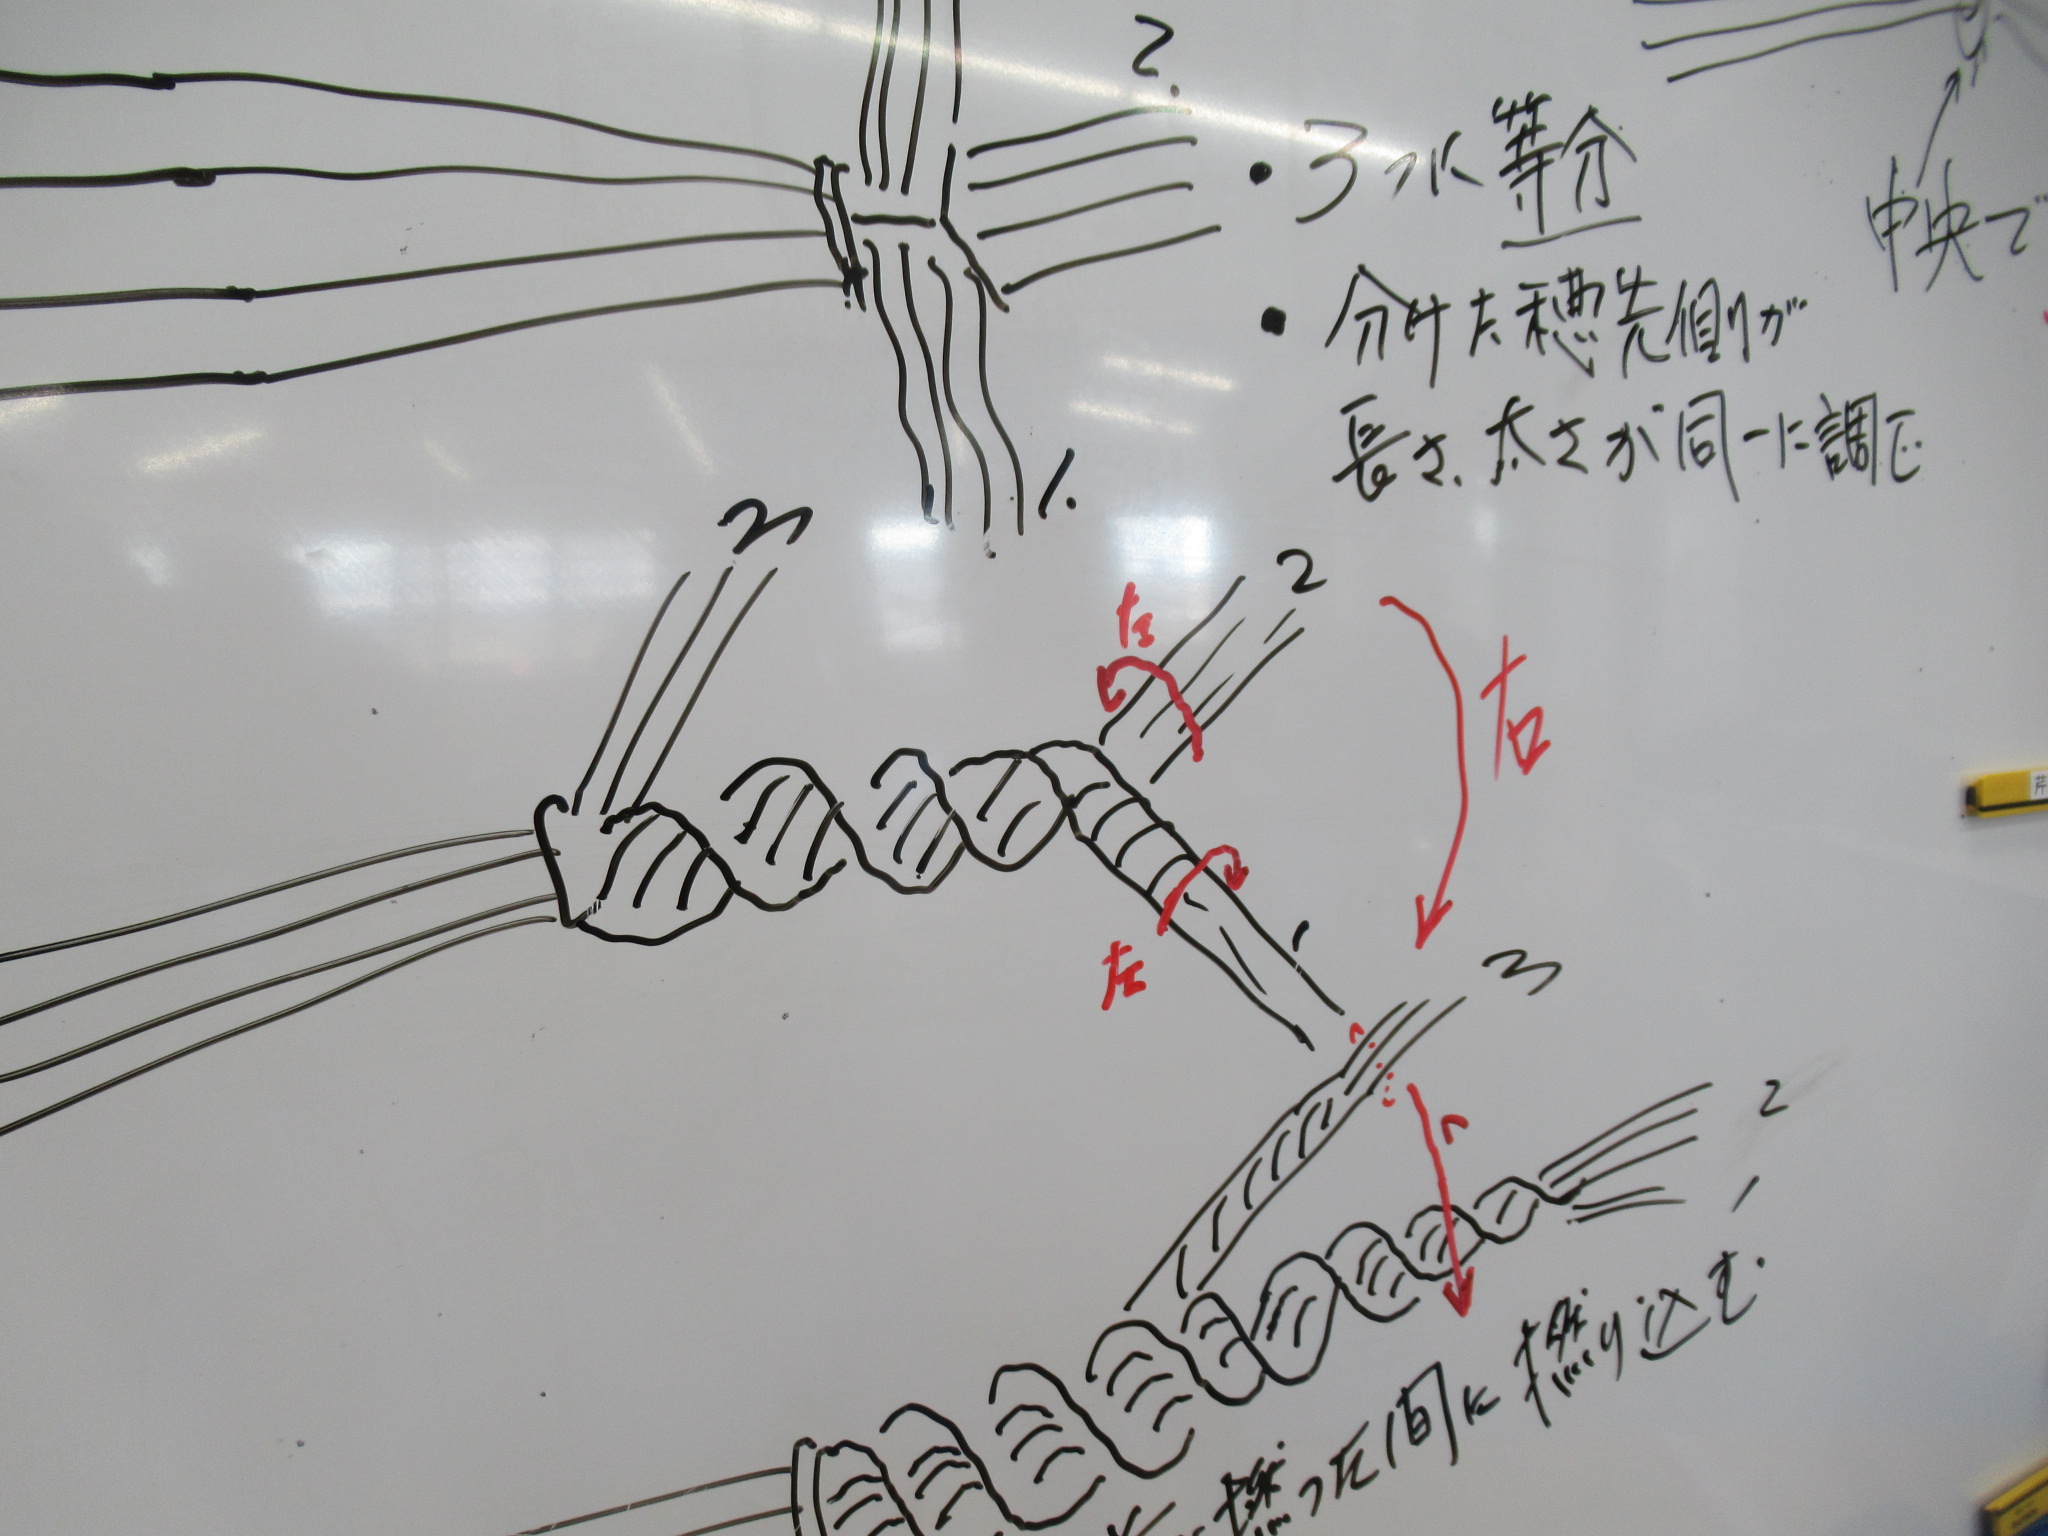 2.
・3つに等分
中央で
・分けた穂先側が
長さ、太さが同一に調じ
1.
3
2
左
右
左
1
3
2
1
撚った間に撚り込む.